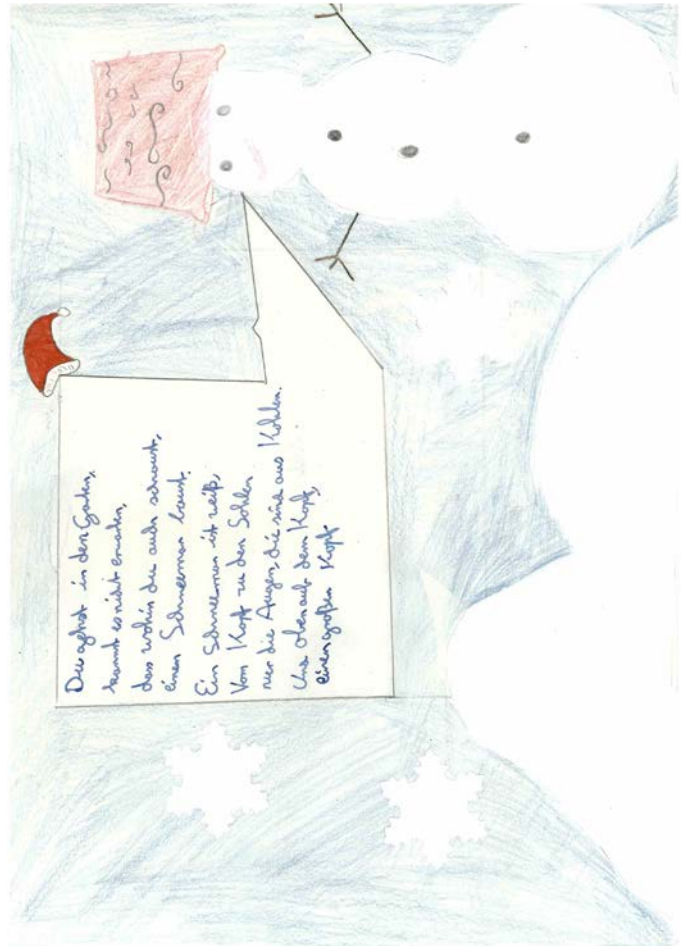 Du gehst in den Garten,
kannst es nicht erwarten,
dass wohin du auch schaust,
einen Schneeman baust.
Ein Schneeman ist weiß,
Vom Kopf zu den Sohlen
nur die Augen, die sind aus Kohlen.
Und oben auf dem Kopf,
einen großen Kopf